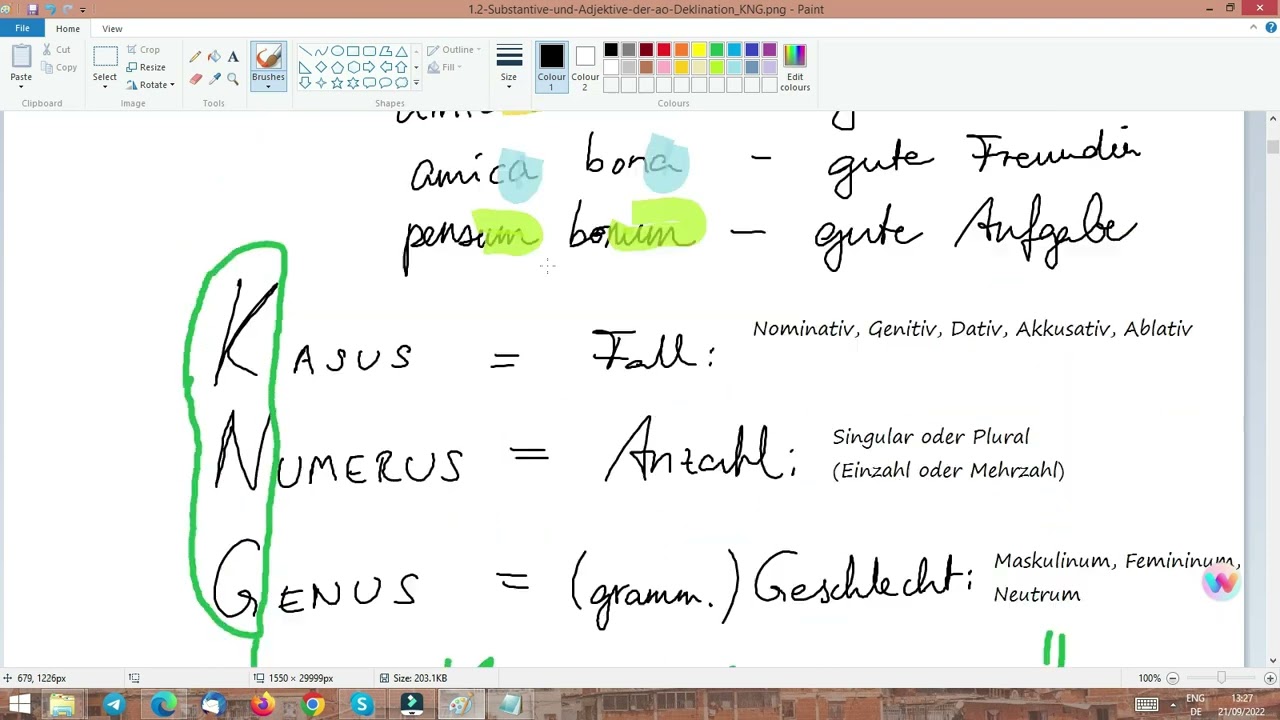 1.2-Substantive-und-Adjektive-der-ao-Deklination_KNG.png - Paint
File Home View
Paste Cut Copy Clipboard
Select Crop Resize Rotate Image
Tools
Brushes
Outline Fill Shapes
Size
Colour 1 Colour 2 Edit colours Colours
amica bona – gute Freundin
pensum bonum – gute Aufgabe
KASUS = Fall: Nominativ, Genitiv, Dativ, Akkusativ, Ablativ
NUMERUS = Anzahl: Singular oder Plural
(Einzahl oder Mehrzahl)
GENUS = (gramm.) Geschlecht: Maskulinum, Femininum,
Neutrum
679, 1226px 1550 × 29999px Size: 203.1KB 100%
ENG 13:27
DE 21/09/2022